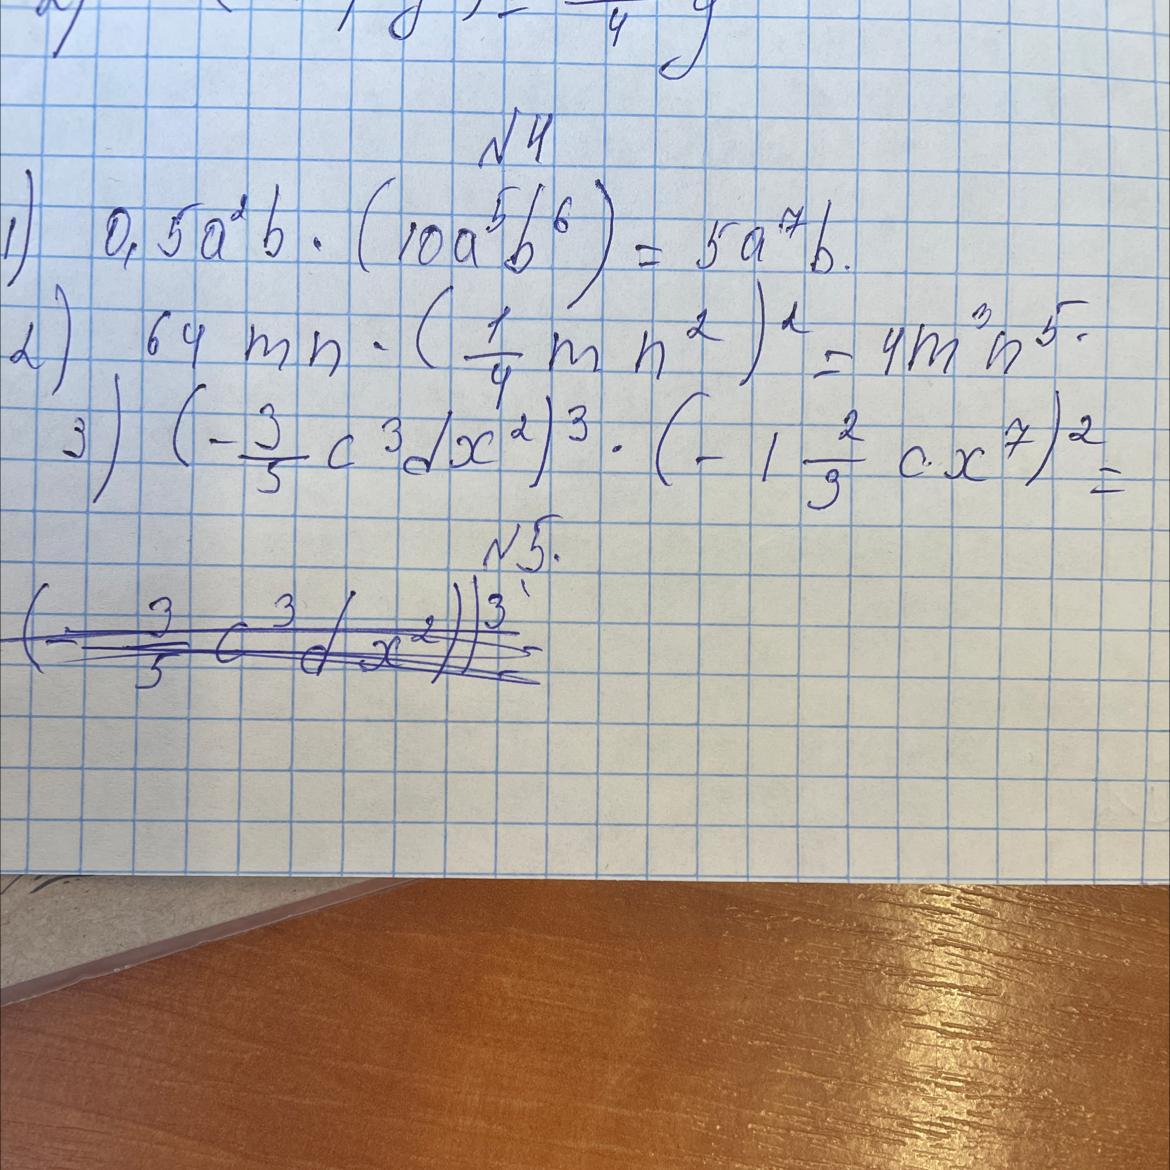 №4
1) 0,5a²b · (10a⁵b⁶) = 5a⁷b.
2) 64 mn · (1/4 m n²)² = 4m³n⁵.
3) (-3/5 c³dx²)³ · (-1 2/3 c x⁷)² =
№5.
(-3/5 c³ d x²))³